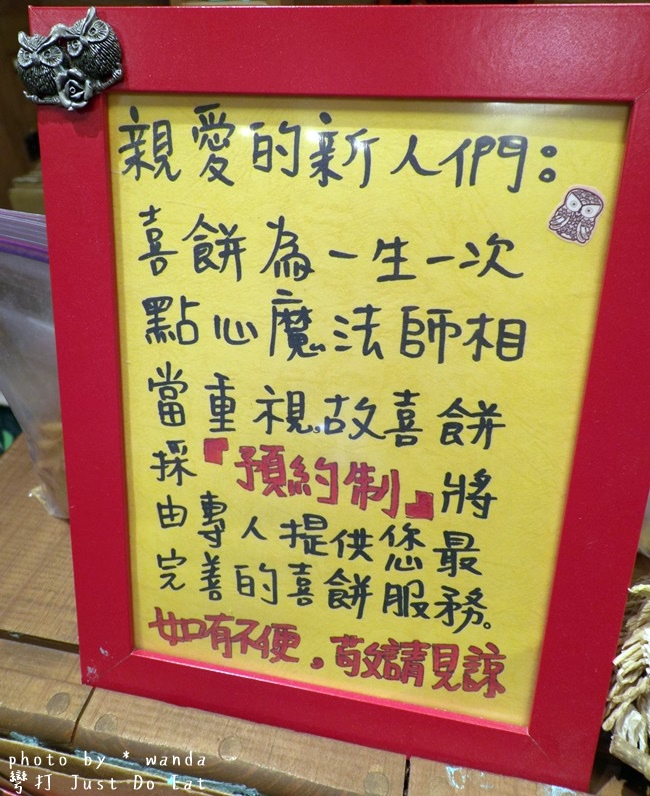 親愛的新人們：
喜餅為一生一次
點心魔法師相
當重視,故喜餅
採『預約制』將
由專人提供您最
完善的喜餅服務。
如有不便，敬請見諒
photo by * wanda
彎打 Just Do Eat